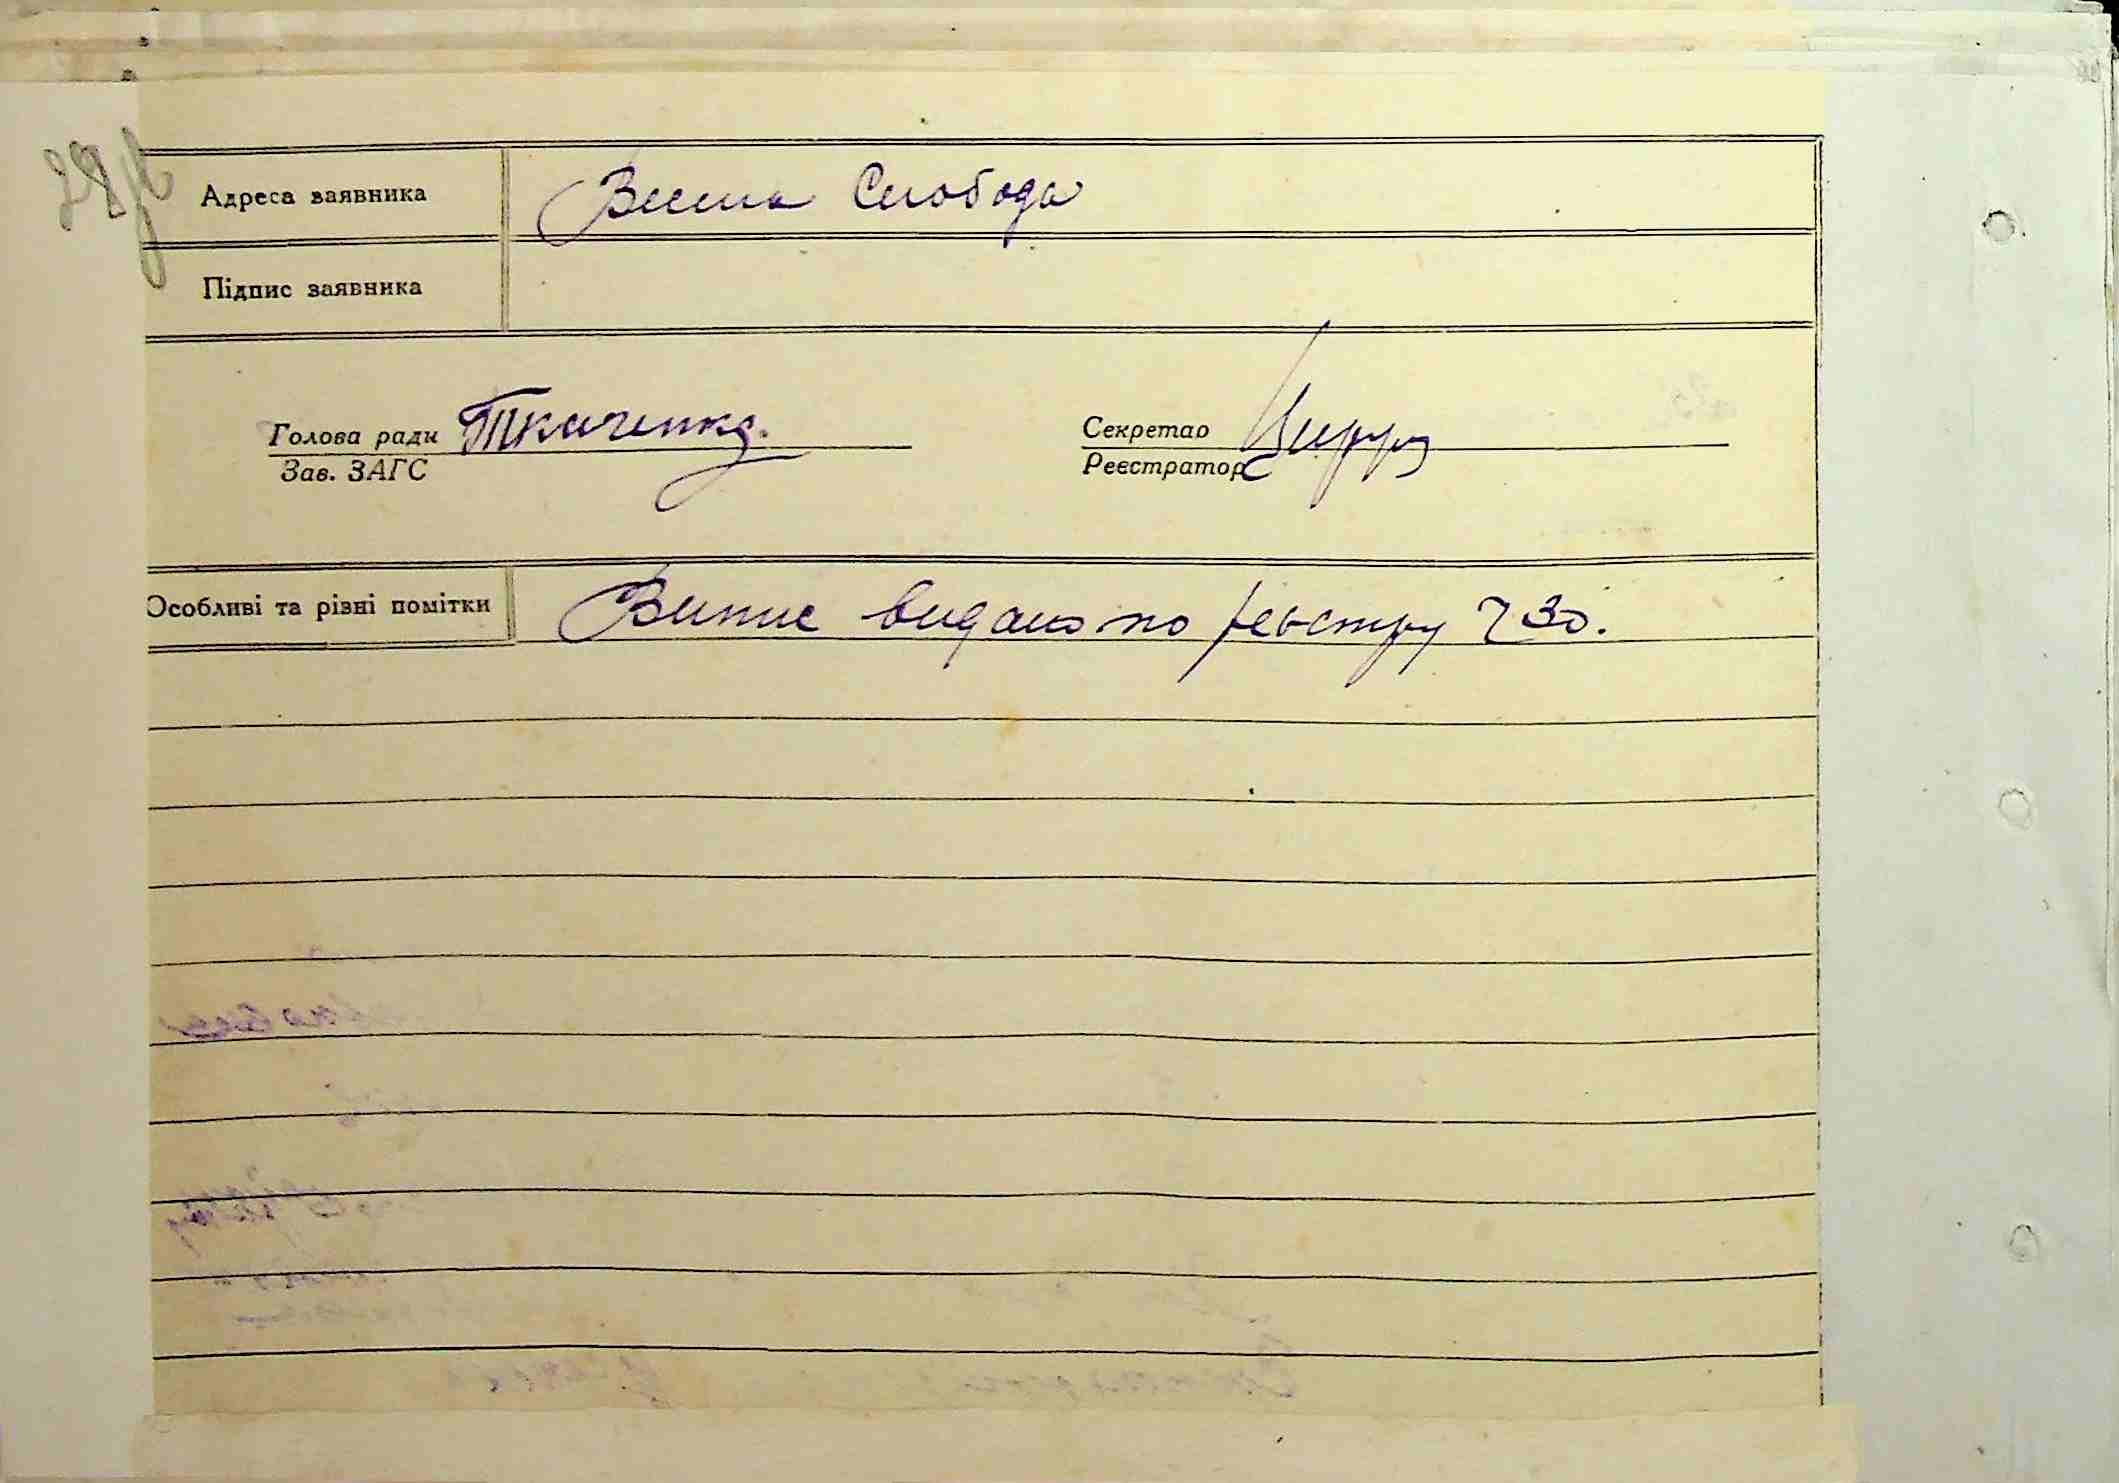 Адреса заявника Висша Слобода
Підпис заявника
Голова ради Ткаченко. Секретар
Зав. ЗАГС Реєстратор
Особливі та різні помітки Випис видано по реєстру 730.